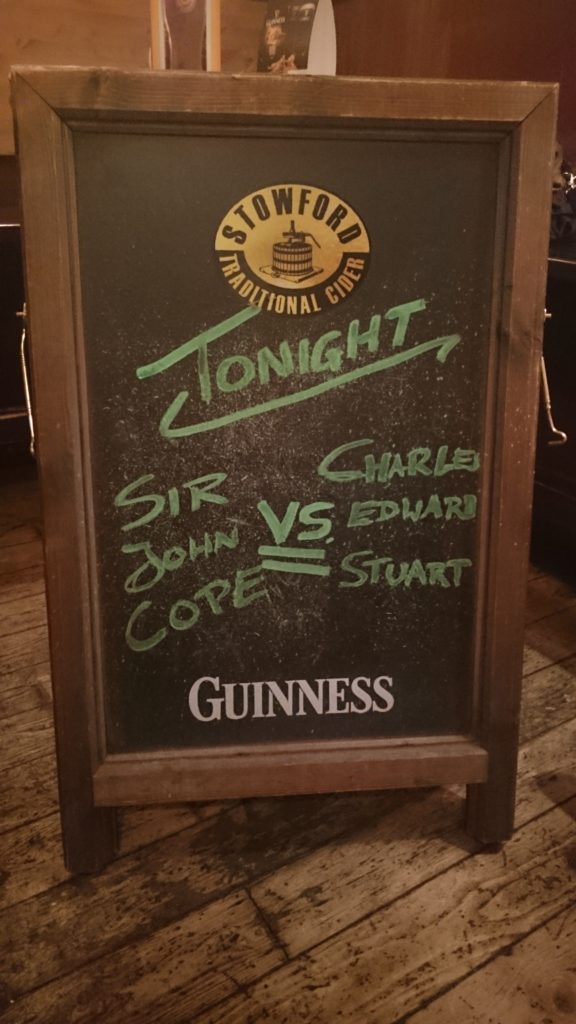 STOWFORD
TRADITIONAL CIDER
TONIGHT
SIR
JOHN
COPE
VS.
CHARLES
EDWARD
STUART
GUINNESS